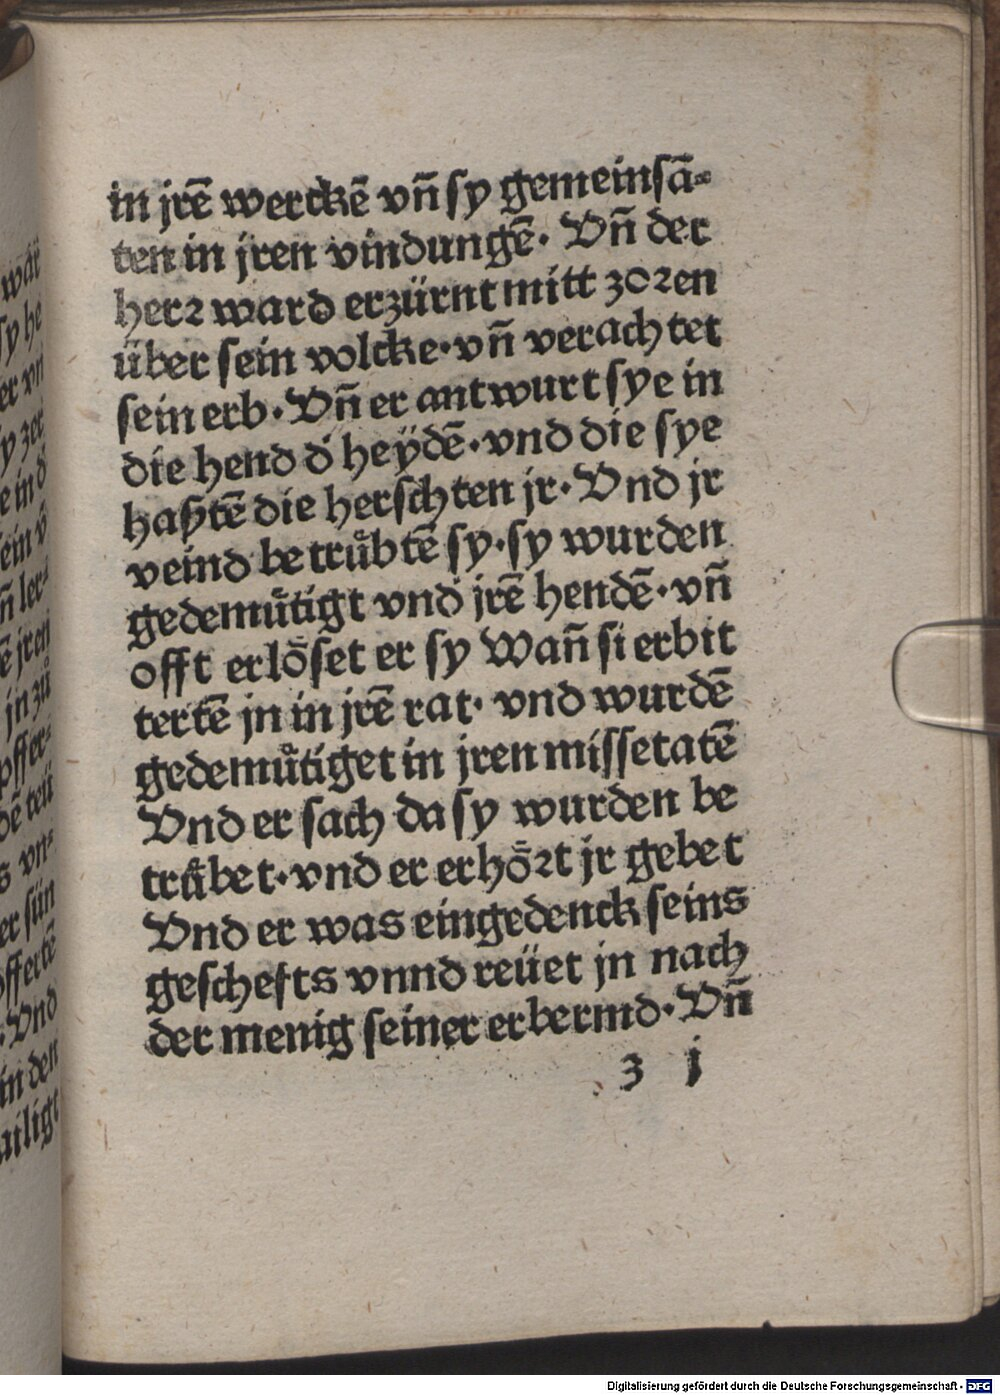 in jrē werckē vn̄ sy gemeinsā⸗
ten in jren vindungē. Vn̄ der
herꝛ ward erzürnt mitt zoꝛen
über sein volcke·vn̄ verachtet
sein erb. Vn̄ er antwurt sye in
die hend d̕ heÿdē·vnd die sye
haßtē die herschten jr. Vnd jr
veind betruͤbtē sy·sy wurden
gedemuͤtigt vnd̕ jrē hendē·vn̄
offt erloͤset er sy Wan̄ si erbit
tertē jn in jrē rat· vnd wurdē
gedemuͤtiget in jren missetatē
Vnd er sach da sy wurden be
truͤbet·vnd er erhoͤꝛt jr gebet
Vnd er was eingedenck seins
geschefts vnnd reüet jn nach
der menig seiner erbermd. Vn̄
z j
Digitalisierung gefördert durch die Deutsche Forschungsgemeinschaft - DFG